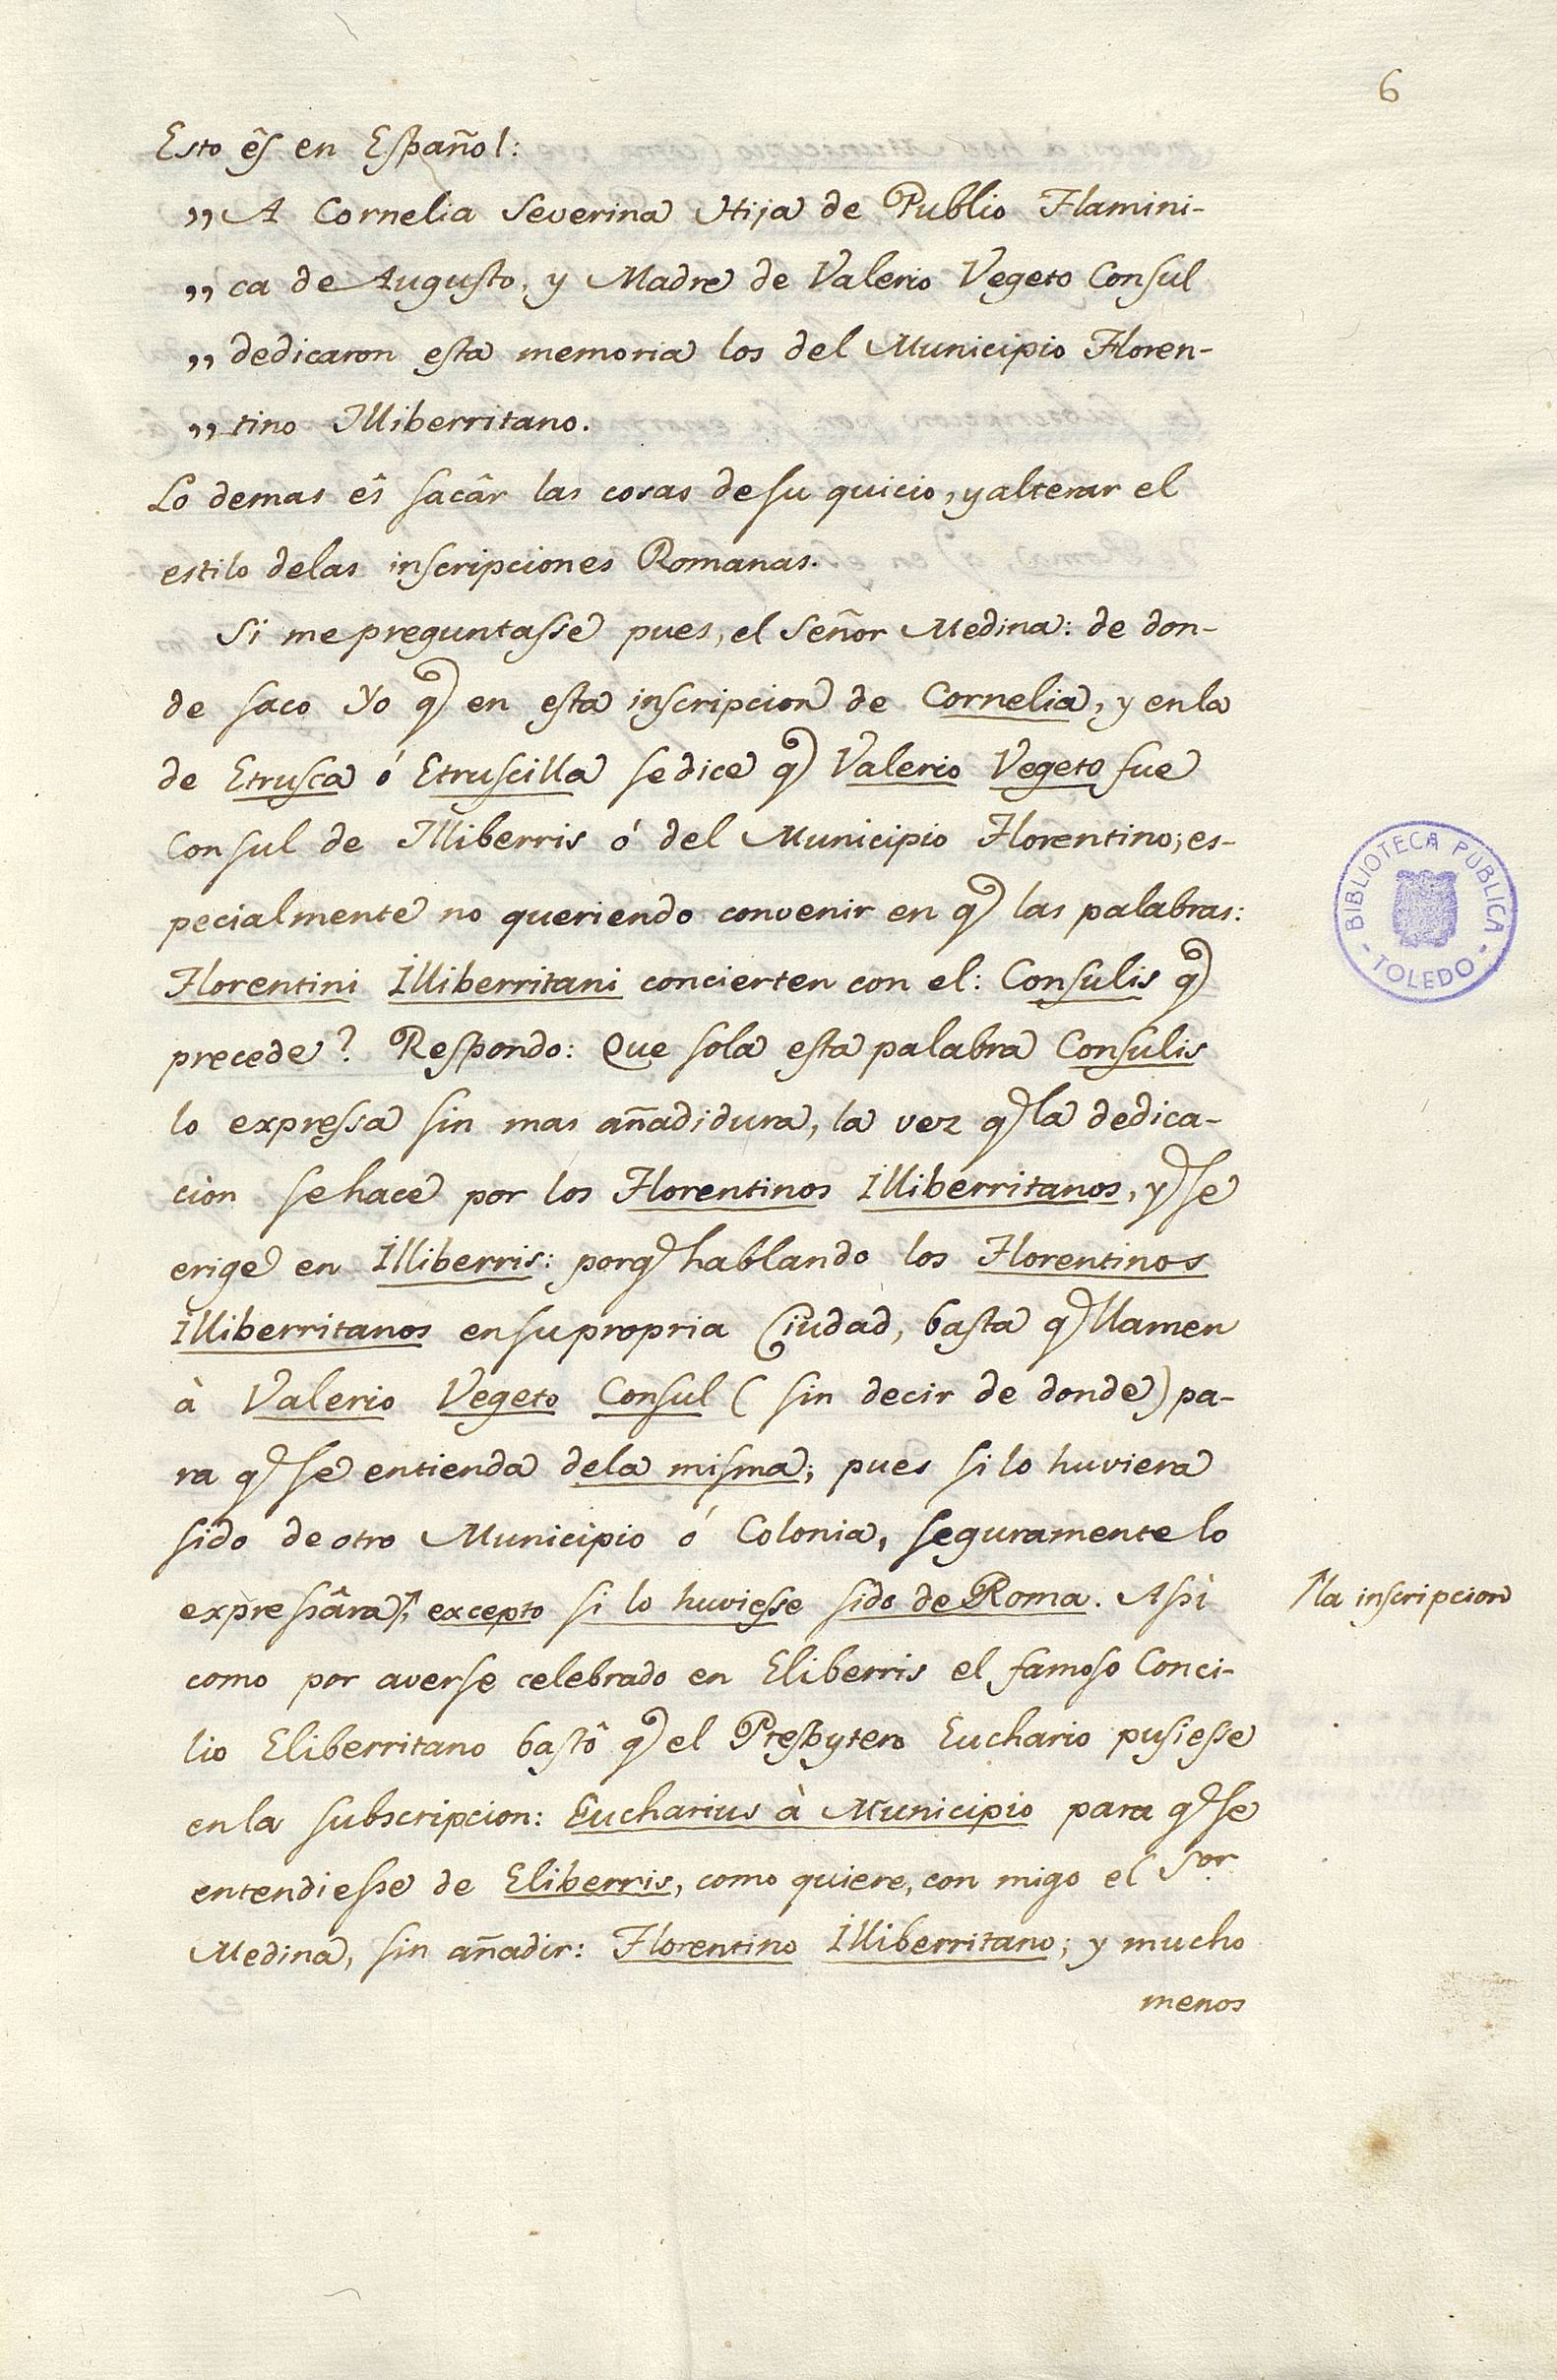 6
Esto ês en Español:
„ A Cornelia Severina Hija de Publio Flamini-
„ ca de Augusto, y Madre de Valerio Vegeto Consul
„ dedicaron esta memoria los del Municipio Floren-
„ tino Illiberritano.
Lo demas ês sacâr las cosas de su quicio, y alterar el
estilo delas inscripciones Romanas.
Si me preguntasse pues, el Señor Medina: de don-
de saco Yo q) en esta inscripcion de Cornelia, y en la
de Etrusca ó Etruscilla se dice q) Valerio Vegeto fue
Consul de Illiberris ó del Municipio Florentino; es-
pecialmente no queriendo convenir en q) las palabras:
Florentini Illiberritani concierten con el: Consulis q)
precede? Respondo: Que sola esta palabra Consulis
lo expressa sin mas añadidura, la vez q) la dedica-
cion se hace por los Florentinos Illiberritanos, y se
erige en Illiberris: porq) hablando los Florentinos
Illiberritanos en su propria Ciudad, basta q) llamen
à Valerio Vegeto Consul (sin decir de donde) pa-
ra q) se entienda dela misma; pues si lo huviera
sido de otro Municipio ó Colonia, seguramente lo
expressâra↑; excepto si lo huviesse sido de Roma. Assi
↑la inscripcion
como por averse celebrado en Eliberris el famoso Conci-
lio Eliberritano bastô q) el Presbytero Euchario pusiesse
en la subscripcion: Eucharius à Municipio para q) se
entendiesse de Eliberris, como quiere, con migo el Sor.
Medina, sin añadir: Florentino Illiberritano; y mucho
menos
BIBLIOTECA PUBLICA
- TOLEDO -